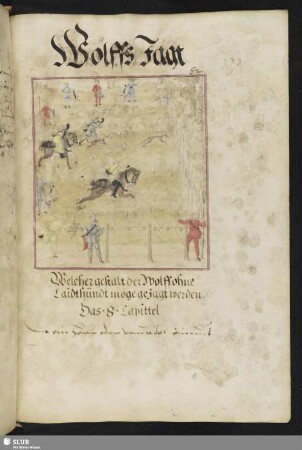 Wolffs Jagt
Welcher gestalt der Wolff ohne
Laidthündt möge gejagt werden
Das · 8 · Capittel
SLUB
Wir führen Wissen.